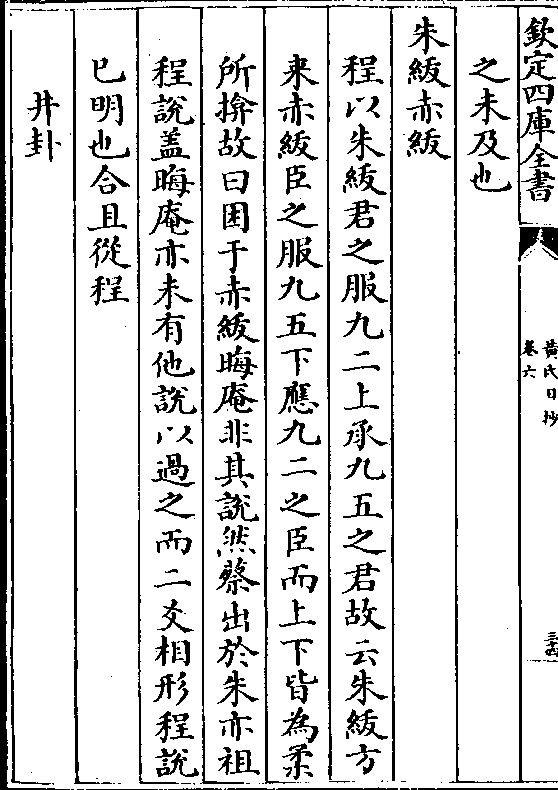 欽定四庫全書
黃氏日抄
卷六
三十四
之未及也
朱紱赤紱
程以朱紱君之服九二上承九五之君故云朱紱方
来赤紱臣之服九五下應九二之臣而上下皆為柔
所揜故曰困于赤紱晦庵非其說然蔡出於朱亦祖
程說盖晦庵亦未有他說以過之而二爻相形程說
已明也合且從程
井卦